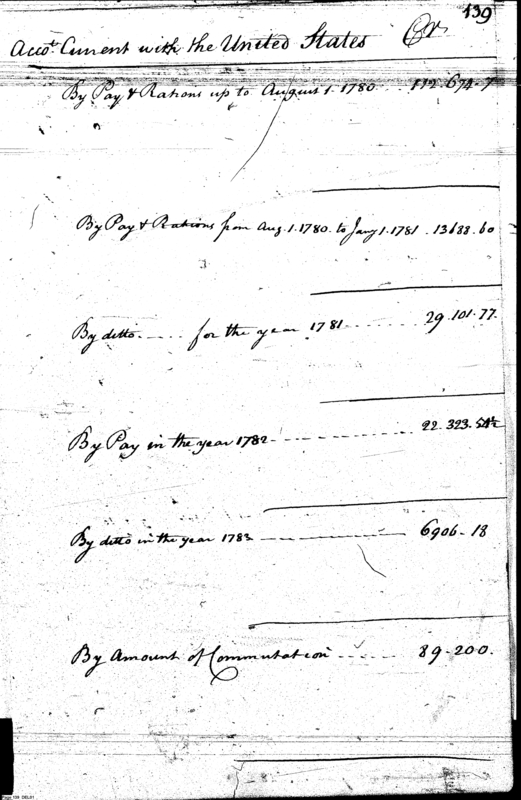 139
Accot. Current with the United States Cr
By Pay & Rations up to August 1. 1780 .. 112.674.7
By Pay & Rations from Aug. 1. 1780. to Jany 1. 1781 . 13688.60
By ditto .... for the year 1781 ....... 29.101.77.
By Pay in the year 1782 - - - - - - - 22.323.54½
By ditto in the year 1783 ———— 6906-18
By Amount of Commutation ..... 89-200.
Page_139_DEL01